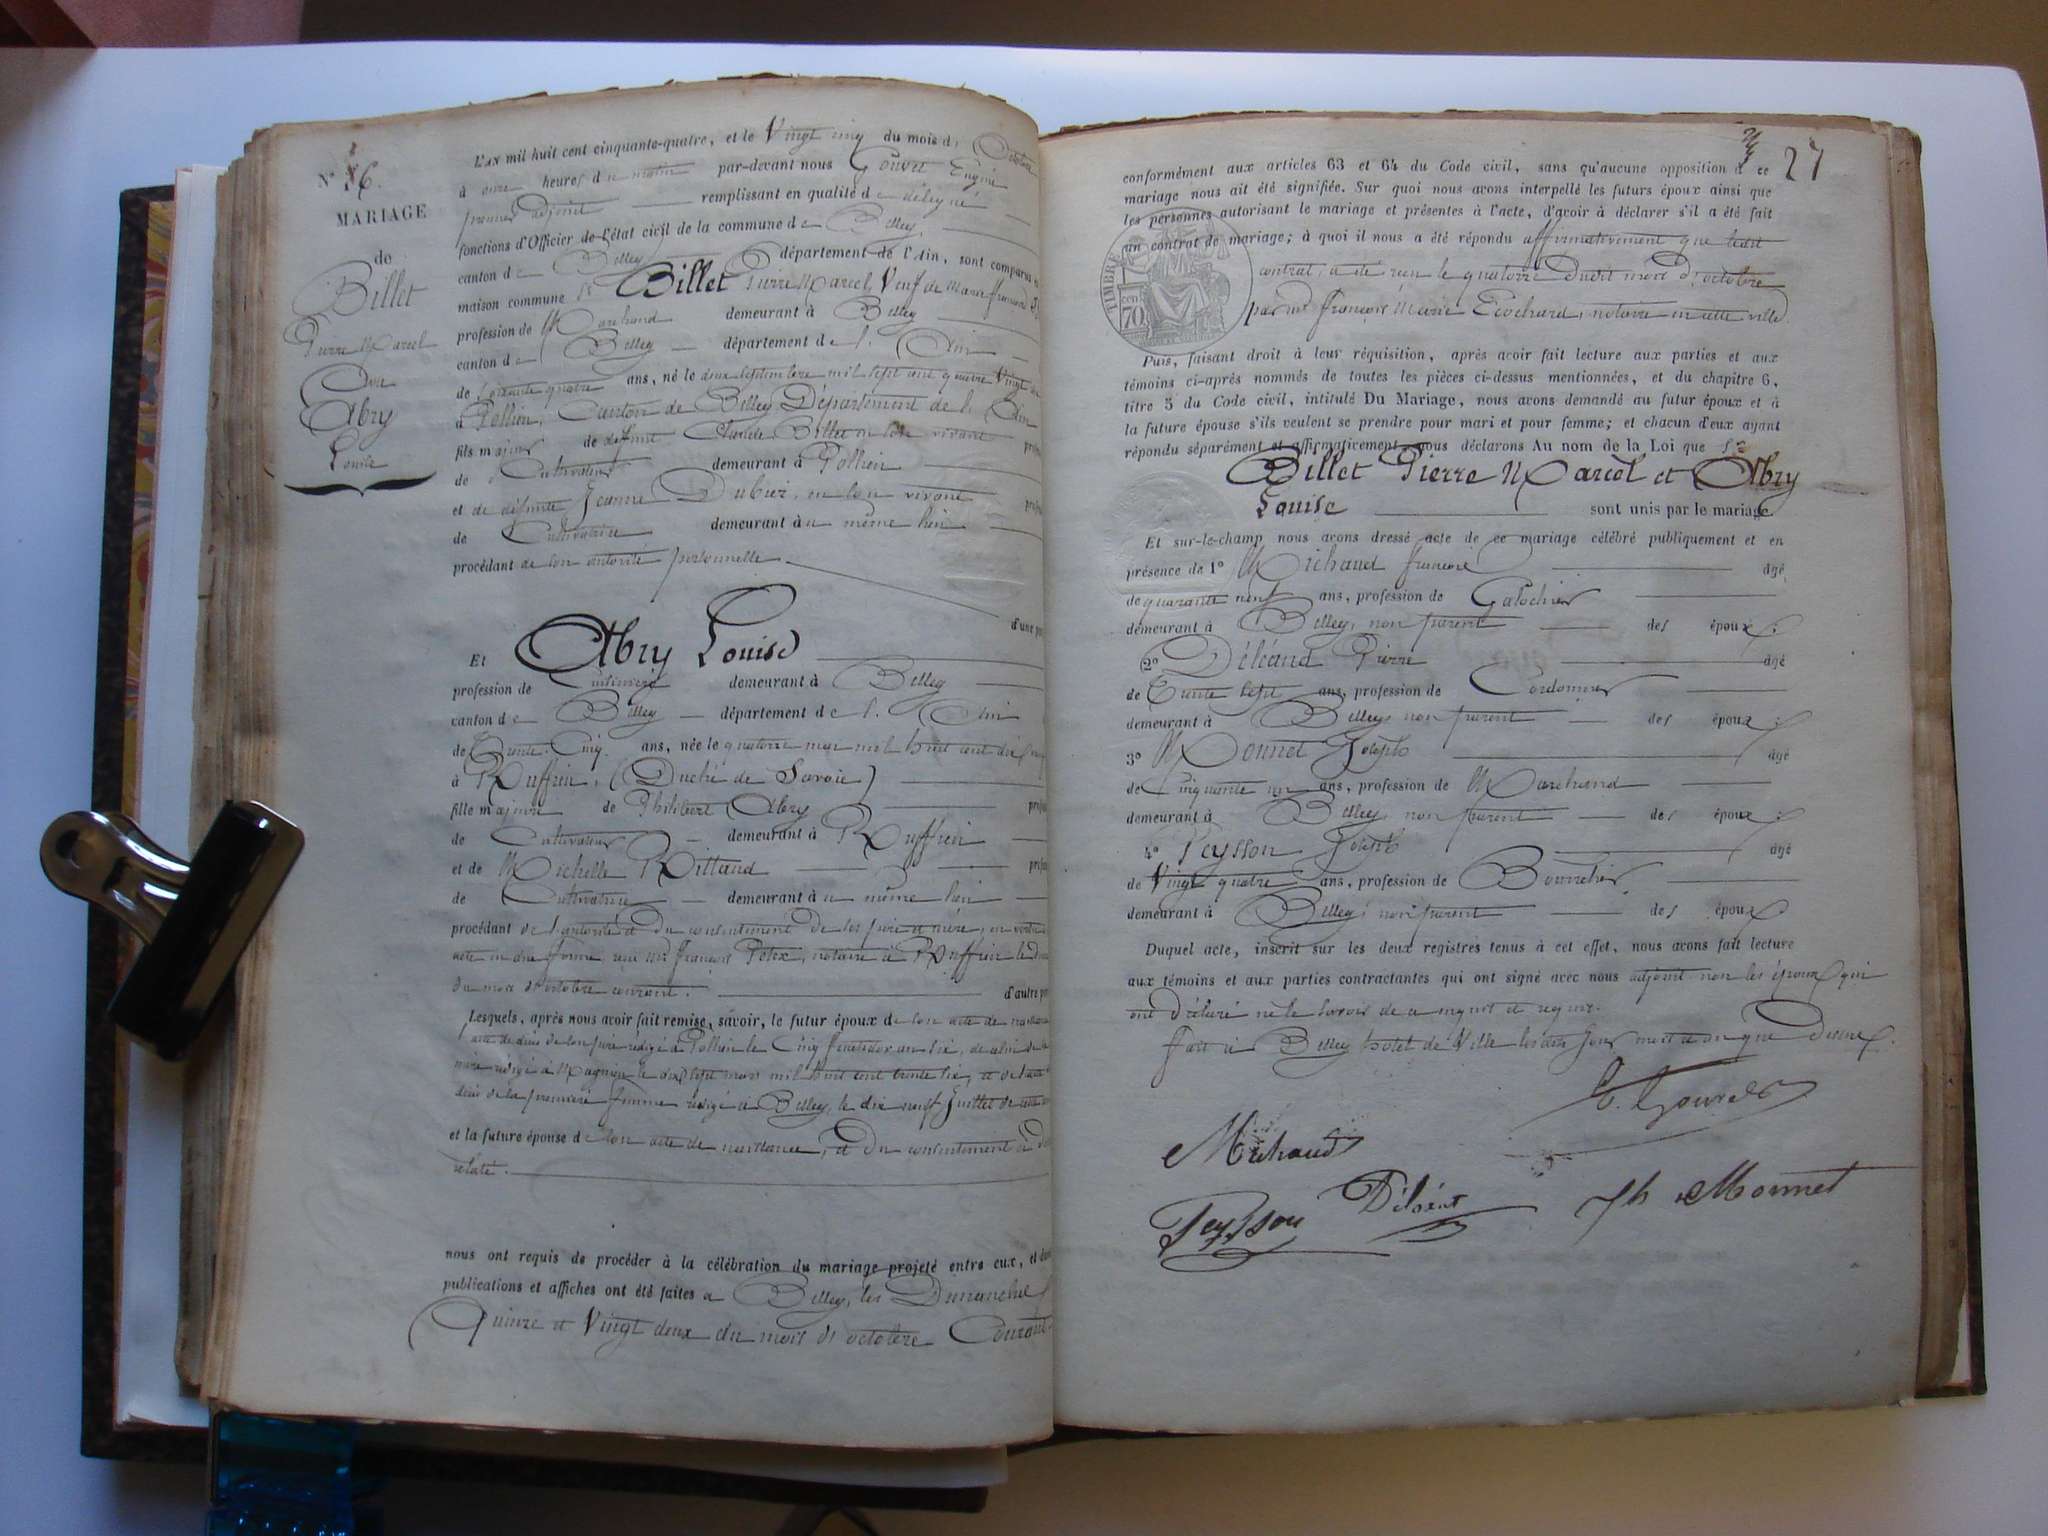 N° 26.
MARIAGE
de
Billet
Pierre Marcel
Abry
Louise
L'AN mil huit cent cinquante-quatre, et le Vingt cinq du mois d'Octobre
à onze heures du matin par-devant nous Gouvet Eugène
premier adjoint remplissant en qualité de délégué
fonctions d'Officier de l'état civil de la commune de Belley,
canton de Belley département de l'Ain, sont comparus
maison commune Sr Billet Pierre Marcel, Veuf de Marie françoise
profession de Marchand demeurant à Belley
canton de Belley département de l'Ain
de Soixante quatre ans, né le deux septembre mil sept cent quatre Vingt
à Pollieu, Canton de Belley Département de l'Ain
fils majeur de défunt Claude Billet en son vivant
de Cultivateur demeurant à Pollieu
et de défunte Jeanne Dubiez, en son vivant
de Cultivatrice demeurant à u même lieu
procédant de son autorité personnelle
d'une
Et Abry Louise
profession de Cuisinière demeurant à Belley
canton de Belley département de l'Ain
de Trente Cinq ans, née le quatorze mai mil huit cent dix neuf
à Ruffieu, (Duché de Savoie)
fille majeure de Philibert Abry
de Cultivateur demeurant à Ruffieu
et de Michelle Rittaud
de Cultivatrice demeurant à u même lieu
procédant de l'autorité et du consentement de ses père et mère, en vertu
acte en due forme, reçu Mr François notaire à Ruffieu le
du mois d'octobre courant. d'autre
Lesquels, après nous avoir fait remise, savoir, le futur époux de son acte de naissance
acte de décès de son père rédigé à Pollieu le Cinq fructidor an six, de celui de
mère rédigé à Magnieu le dix sept mars mil huit cent trente six, et de
décès de la première femme rédigé à Belley, le dix neuf Juillet de
et la future épouse de son acte de naissance, et du consentement
relaté.
nous ont requis de procéder à la célébration du mariage projeté entre eux, et
publications et affiches ont été faites à Belley, les Dimanches
Quinze et Vingt deux du mois d'octobre Courant
27
conformément aux articles 63 et 64 du Code civil, sans qu'aucune opposition à ce
mariage nous ait été signifiée. Sur quoi nous avons interpellé les futurs époux ainsi que
les personnes autorisant le mariage et présentes à l'acte, d'avoir à déclarer s'il a été fait
un contrat de mariage; à quoi il nous a été répondu affirmativement que ledit
contrat a été reçu le quatorze dudit mois d'octobre
par Mr françois Marie Ecochard, notaire en cette ville.
TIMBRE
70
Puis, faisant droit à leur réquisition, après avoir fait lecture aux parties et aux
témoins ci-après nommés de toutes les pièces ci-dessus mentionnées, et du chapitre 6,
titre 5 du Code civil, intitulé Du Mariage, nous avons demandé au futur époux et à
la future épouse s'ils veulent se prendre pour mari et pour femme; et chacun d'eux ayant
répondu séparément et affirmativement, nous déclarons Au nom de la Loi que Sr
Billet Pierre Marcel et Abry
Louise sont unis par le mariage.
Et sur-le-champ nous avons dressé acte de ce mariage célébré publiquement et en
présence de 1° Michaud françois âgé
de quarante neuf ans, profession de Galochier
demeurant à Belley, non parent des époux;
2° Déléand Pierre âgé
de Trente sept ans, profession de Cordonnier
demeurant à Belley, non parent des époux;
3° Monnet Joseph âgé
de Cinquante un ans, profession de Marchand
demeurant à Belley, non parent des époux;
4° Peysson Joseph âgé
de Vingt quatre ans, profession de Bourrelier
demeurant à Belley, non parent des époux
Duquel acte, inscrit sur les deux registres tenus à cet effet, nous avons fait lecture
aux témoins et aux parties contractantes qui ont signé avec nous adjoint non les époux qui
ont déclaré ne le savoir de ce enquis et requis.
fait à Belley hotel de Ville les dits Jour mois et an que dessus.
E. Gouvet
Michaud
Peysson
Jh Monnet